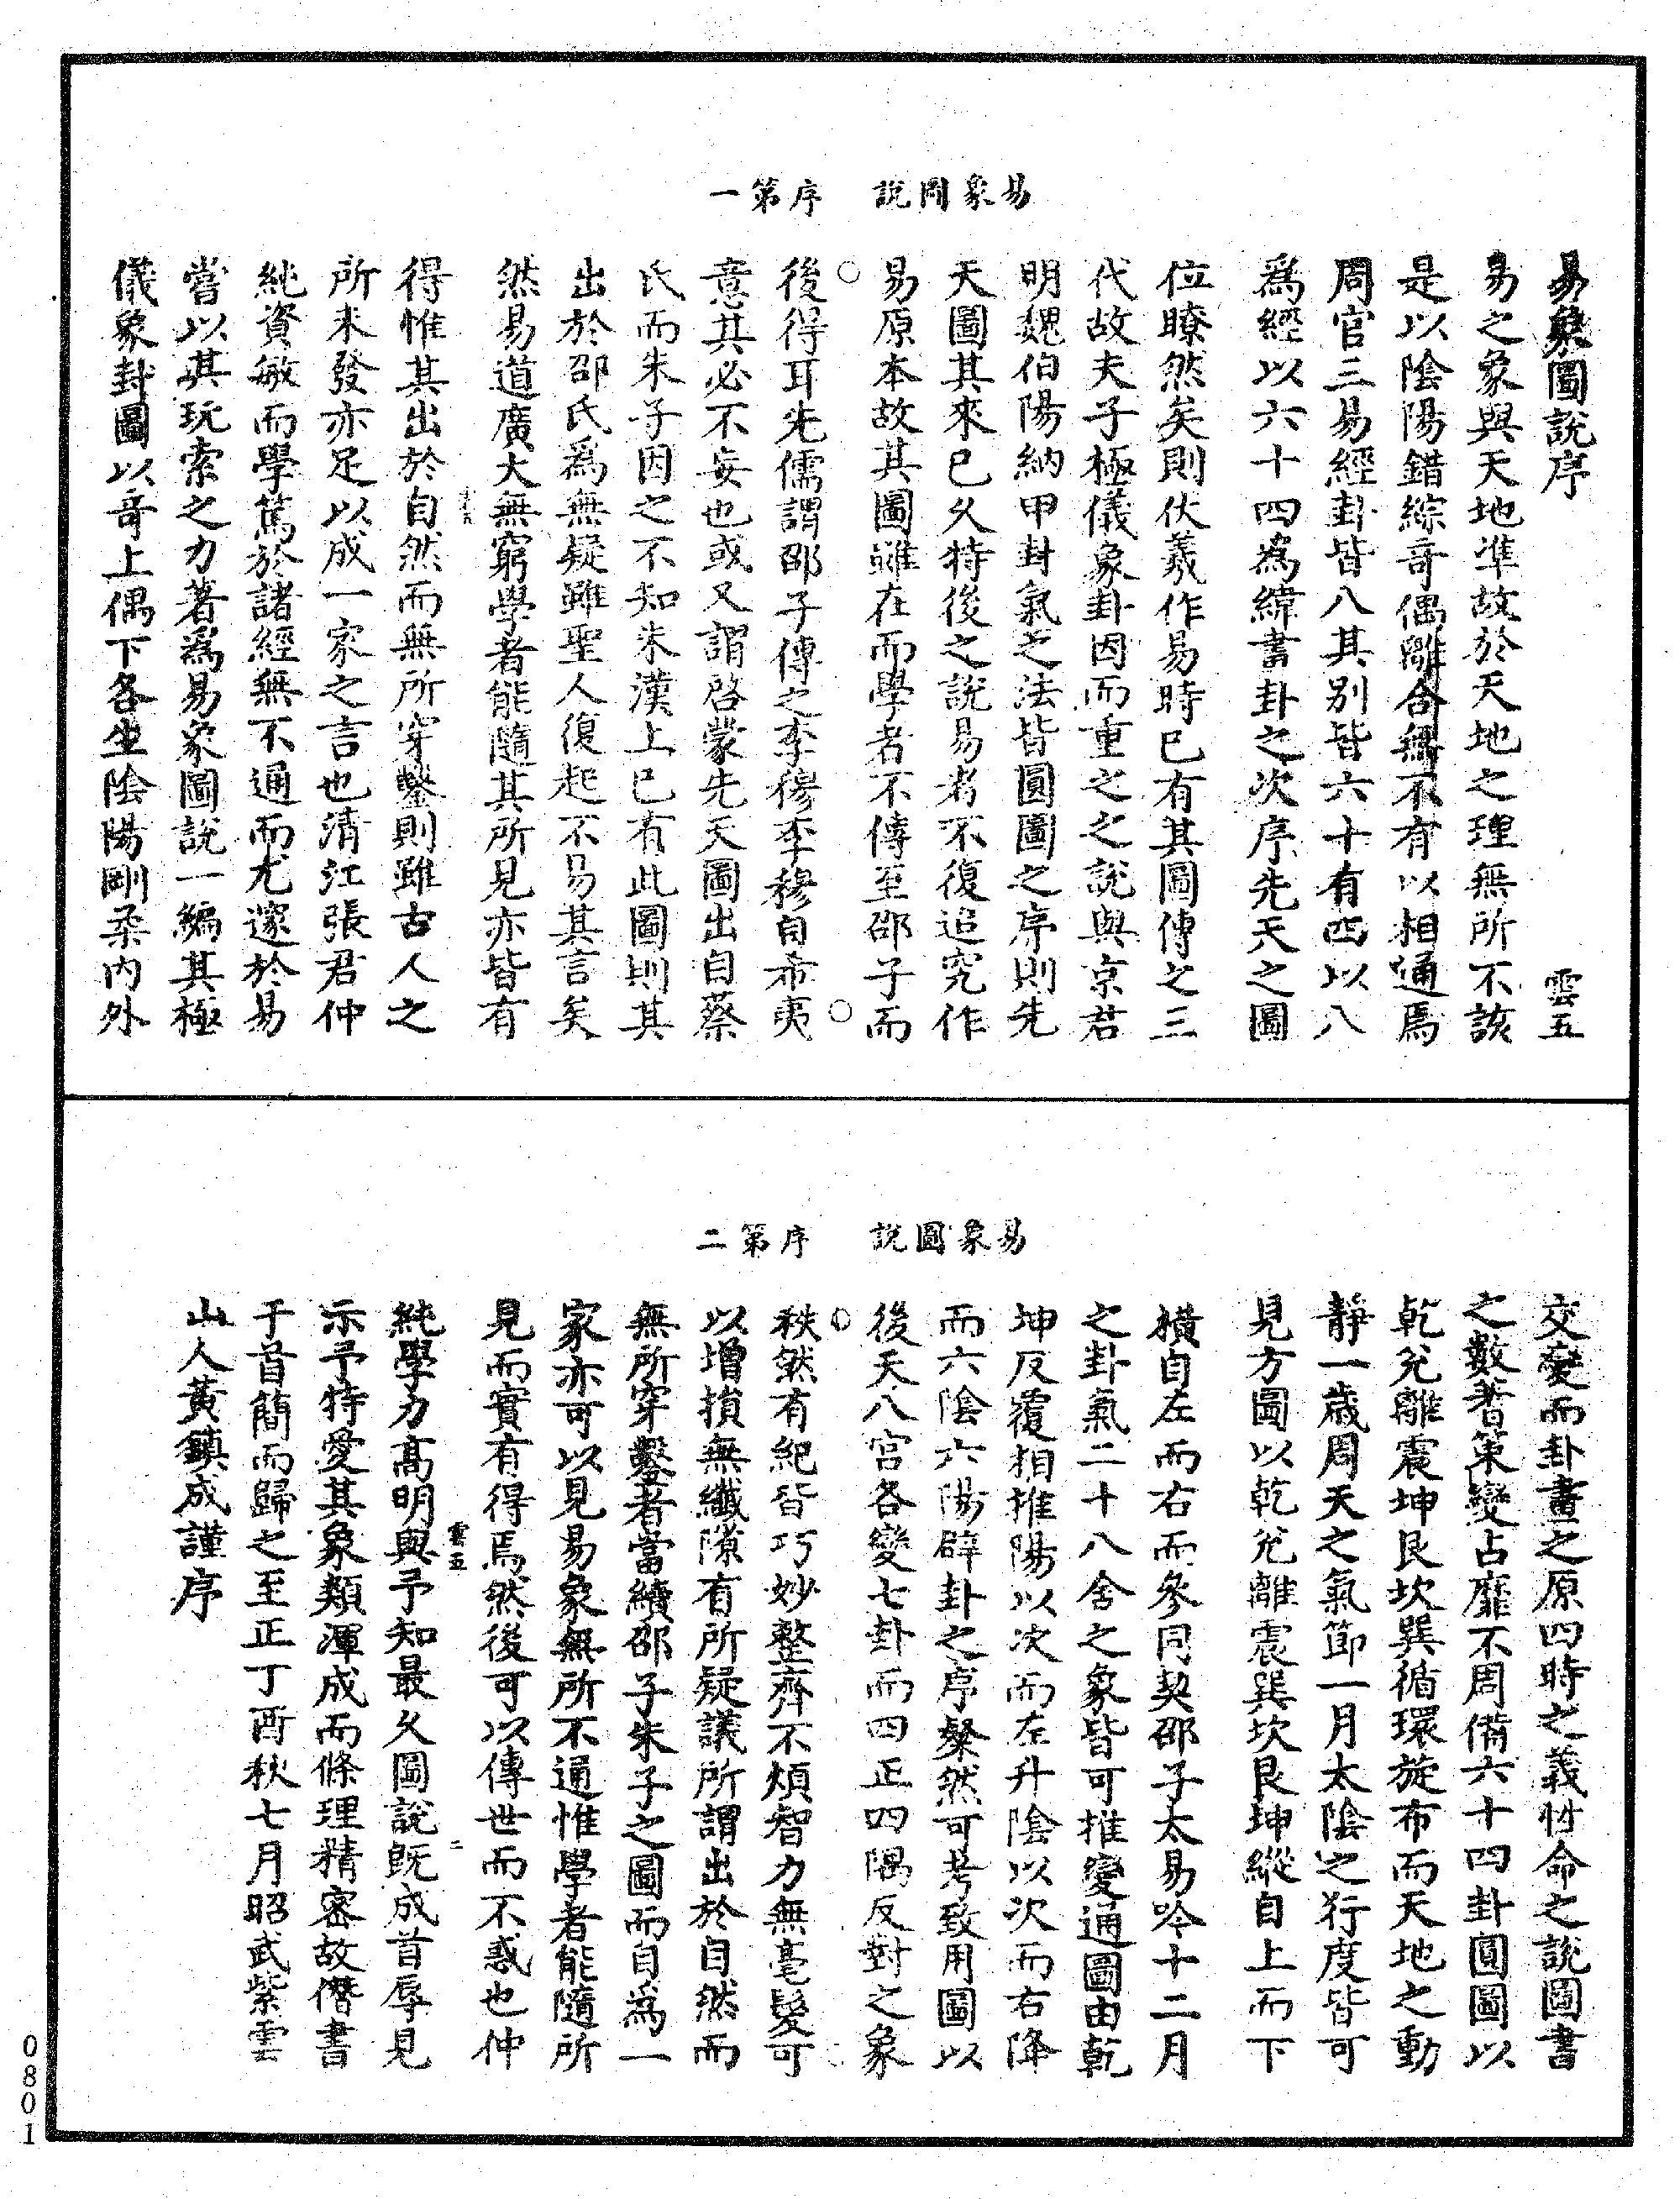 易象圖說　序第一
易象圖說序　雲五
易之象與天地準故於天地之理無所不該
是以陰陽錯綜奇偶離合無不有以相通焉
周官三易經卦皆八其別皆六十有四以八
爲經以六十四爲緯畫卦之次序先天之圖
位瞭然矣則伏羲作易時已有其圖傳之三
代故夫子極儀象卦因而重之之說與京君
明魏伯陽納甲卦氣之法皆圓圖之序則先
天圖其來已久特後之說易者不復追究作
易原本故其圖雖在而學者不傳至邵子而
後得耳先儒謂邵子傳之李穆李穆自希夷
意其必不妄也或又謂啓蒙先天圖出自蔡
氏而朱子因之不知朱漢上已有此圖則其
出於邵氏爲無疑雖聖人復起不易其言矣
然易道廣大無窮學者能隨其所見亦皆有
得惟其出於自然而無所穿鑿則雖古人之
所未發亦足以成一家之言也清江張君仲
純資敏而學篤於諸經無不通而尤邃於易
嘗以其玩索之力著爲易象圖說一編其極
儀象卦圖以奇上偶下各生陰陽剛柔內外
易象圖說　序第二
交變而卦畫之原四時之義性命之說圖書
之數蓍策變占靡不周備六十四卦圓圖以
乾兌離震坤艮坎巽循環旋布而天地之動
靜一歲周天之氣節一月太陰之行度皆可
見方圖以乾兌離震巽坎艮坤縱自上而下
橫自左而右而參同契邵子太易吟十二月
之卦氣二十八舍之象皆可推變通圖由乾
坤反覆相推陽以次而左升陰以次而右降
而六陰六陽辟卦之序粲然可考致用圖以
後天八宮各變七卦而四正四隅反對之象
秩然有紀皆巧妙整齊不煩智力無毫髮可
以增損無纖隙有所疑議所謂出於自然而
無所穿鑿者當續邵子朱子之圖而自爲一
家亦可以見易象無所不通惟學者能隨所
見而實有得焉然後可以傳世而不惑也仲
雲五　二
純學力高明與予知最久圖說旣成首辱見
示予特愛其象類渾成而條理精密故僭書
于首簡而歸之至正丁酉秋七月昭武紫雲
山人黃鎮成謹序
0801